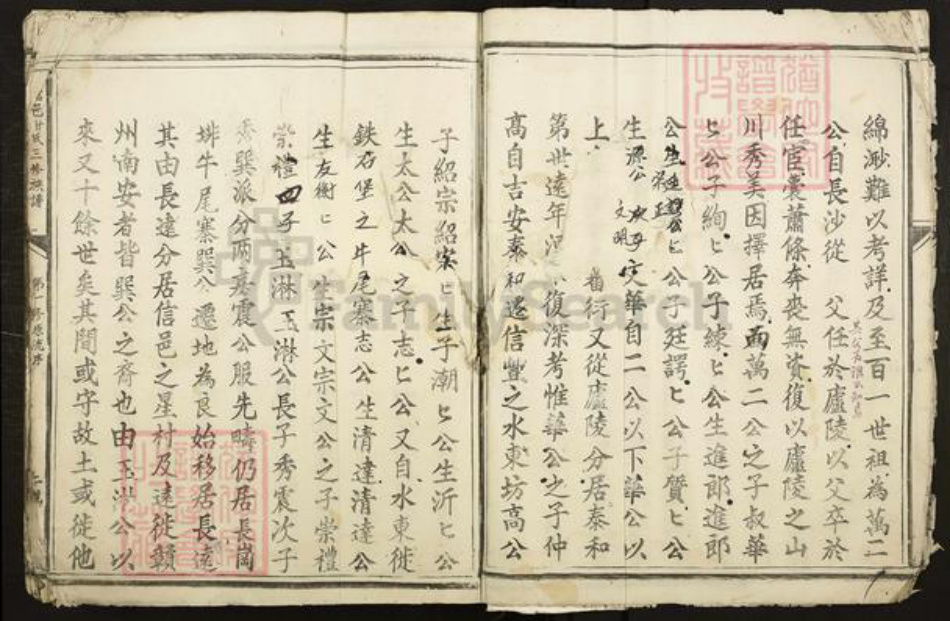 綿渺難以考詳及至百一世祖為萬二
公自長沙從 父任於廬陵以父卒於
任宦囊蕭條奔喪無資復以廬陵之山
川秀美因擇居焉而萬二公之子叔華
匕公子絢匕公子練匕公生進郎進郎
公生 公匕公子廷諤匕公子質匕公
生源公 文明 華自二公以下華公以
上 舊衍又從廬陵分居泰和
第世遠年 復深考惟華公之子仲
高自吉安泰和遷信豐之水東坊高公
子紹宗紹宗匕生子潮匕公生沂匕公
生太公太公之子志匕公又自水東徙
鉄石堡之牛尾寨志公生清達清達公
生友衡匕公生宗文宗文公之子崇禮
崇禮四子玉淋玉淋公長子秀震次子
秀巽派分兩房震公服先疇仍居長崗
排牛尾寨巽公遷地為良始移居長遠
其由長遠分居信邑之星村及遠徙贛
州南安者皆巽公之裔也由玉淋公以
來又十餘世矣其間或守故土或徙他
三修族譜
源流序
FamilySearch